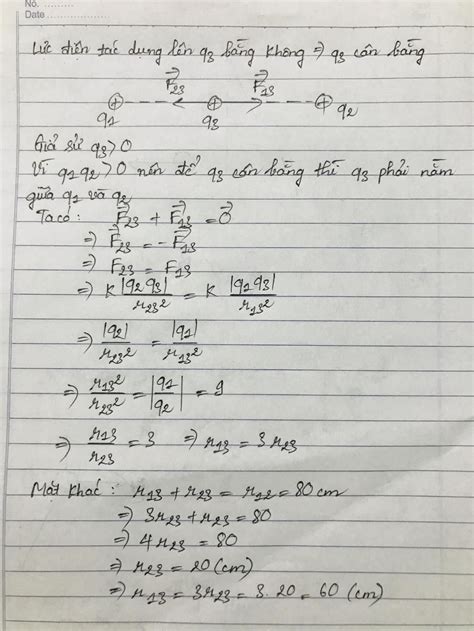 No.
Date
Lực điện tác dụng lên q3 bằng không => q3 cân bằng
F23 F13
q1 q3 q2
Giả sử q3 > 0
Vì q1 q2 > 0 nên để q3 cân bằng thì q3 phải nằm
giữa q1 và q2
Ta có: F23 + F13 = 0
=> F23 = - F13
=> F23 = F13
=> K |q2 q3| / r23² = K |q1 q3| / r13²
=> |q2| / r23² = |q1| / r13²
=> r13² / r23² = |q1 / q2| = 9
=> r13 / r23 = 3 => r13 = 3 r23
Mặt khác: r13 + r23 = r12 = 80 cm
=> 3r23 + r23 = 80
=> 4 r23 = 80
=> r23 = 20 (cm)
=> r13 = 3r23 = 3. 20 = 60 (cm)